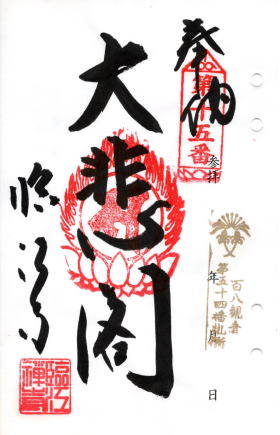 奉納
第十五番
参拝
大悲閣
百八観音
第五十四番札所
年
月
日
臨江寺
臨江
禅寺